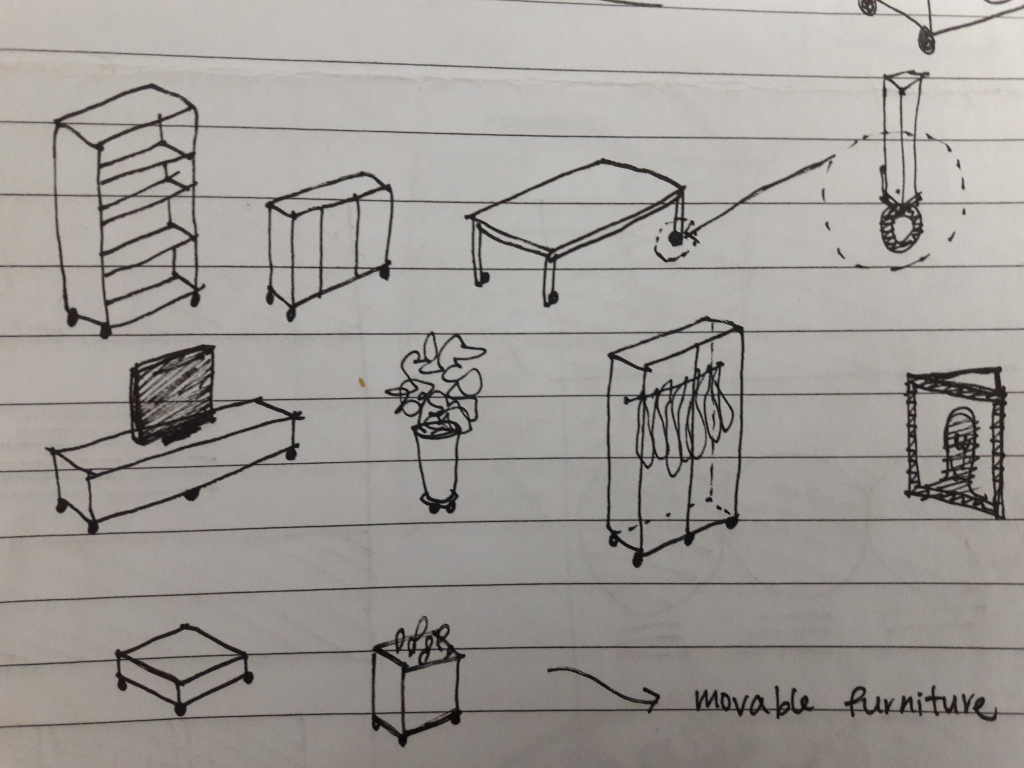 movable furniture